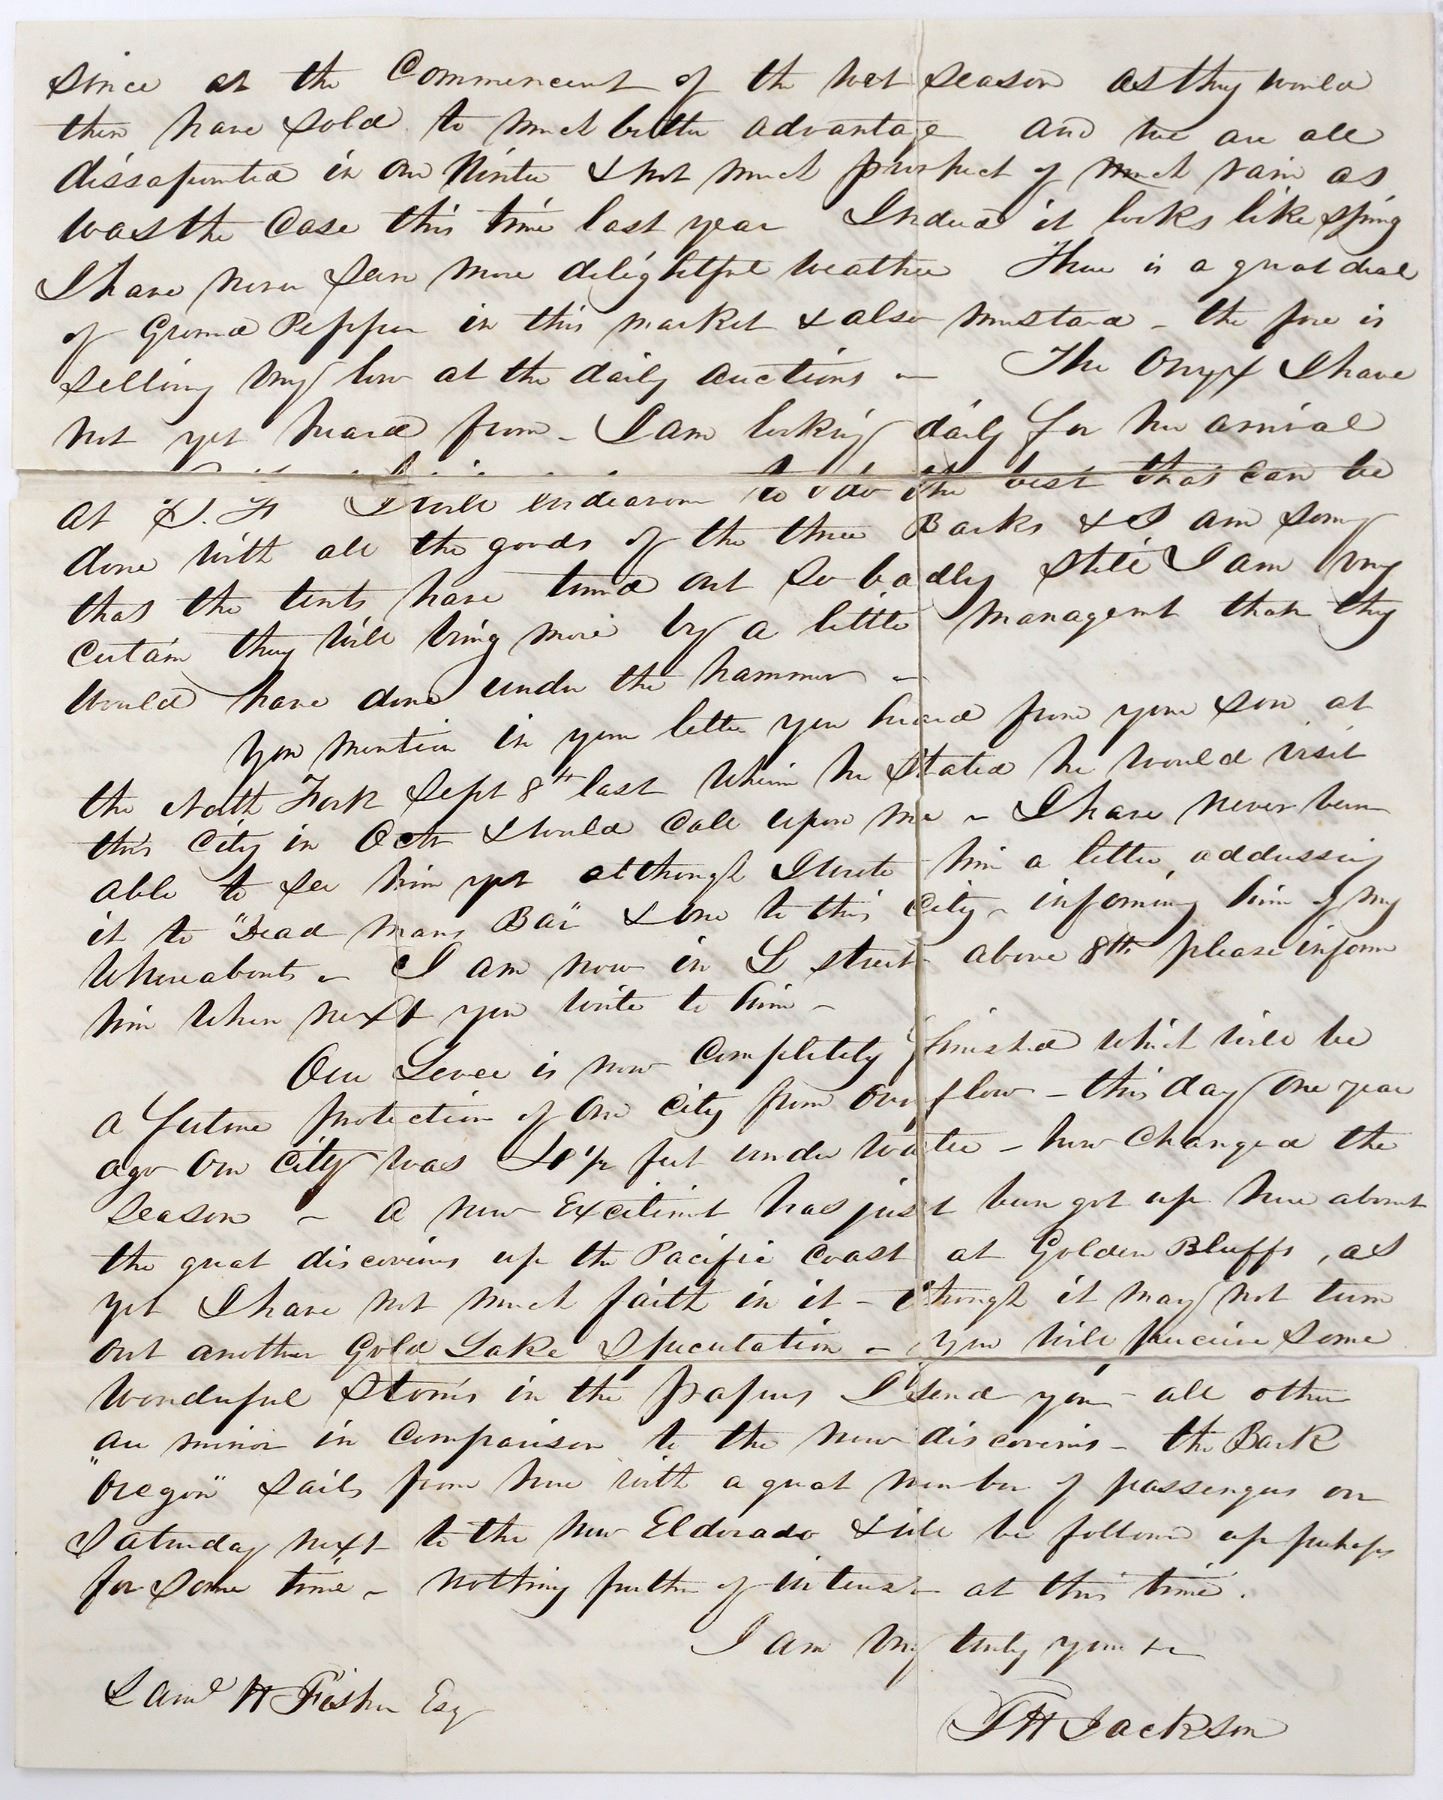 since at the Commencent of the wet season as they would
then have sold to much better advantage and we are all
dissapointed in our Winter & not much prospect of much rain as
was the Case this time last year Indeed it looks like spring
I have never seen more delightful weather There is a great deal
of Ground Pepper in this market & also mustard - the fore is
selling very low at the daily auctions - The Onyx I have
not yet heard from - I am looking daily for her arrival
at S. F I will endeavour to do the best that can be
done with all the goods of the three Barks & I am sorry
that the tents have turned out so badly still I am very
certain they will bring more by a little managemt than they
would have done under the hammer -
You mention in your letter you heard from your son at
the North Fork Sept 8th last wherin he stated he would visit
this City in Octr & would call upon me - I have never been
able to see him yet although I wrote him a letter addressing
it to "Dead Mans Bar" & one to this City - informing him of my
whereabouts - I am now in L street above 8th please inform
him when next you write to him -
Our Levee is now completely finished which will be
a future protection of our City from overflow - this day one year
ago our City was feet under water - how changed the
season - a new Excitemt has just been got up here about
the great discoveries up the Pacific coast at Golden Bluffs, as
yet I have not much faith in it - though it may not turn
out another Gold Lake Speculation - you will perceive some
wonderful stories in the papers I send you - all other
are minor in comparison to the new discoveries - the Bark
"Oregon" sails from here with a great number of passengers on
Saturday next to the new Eldorado & will be followed up perhaps
for some time - nothing further of interest at this time.
I am very truly yours &c
Saml H Fisher Esq
T H Jackson